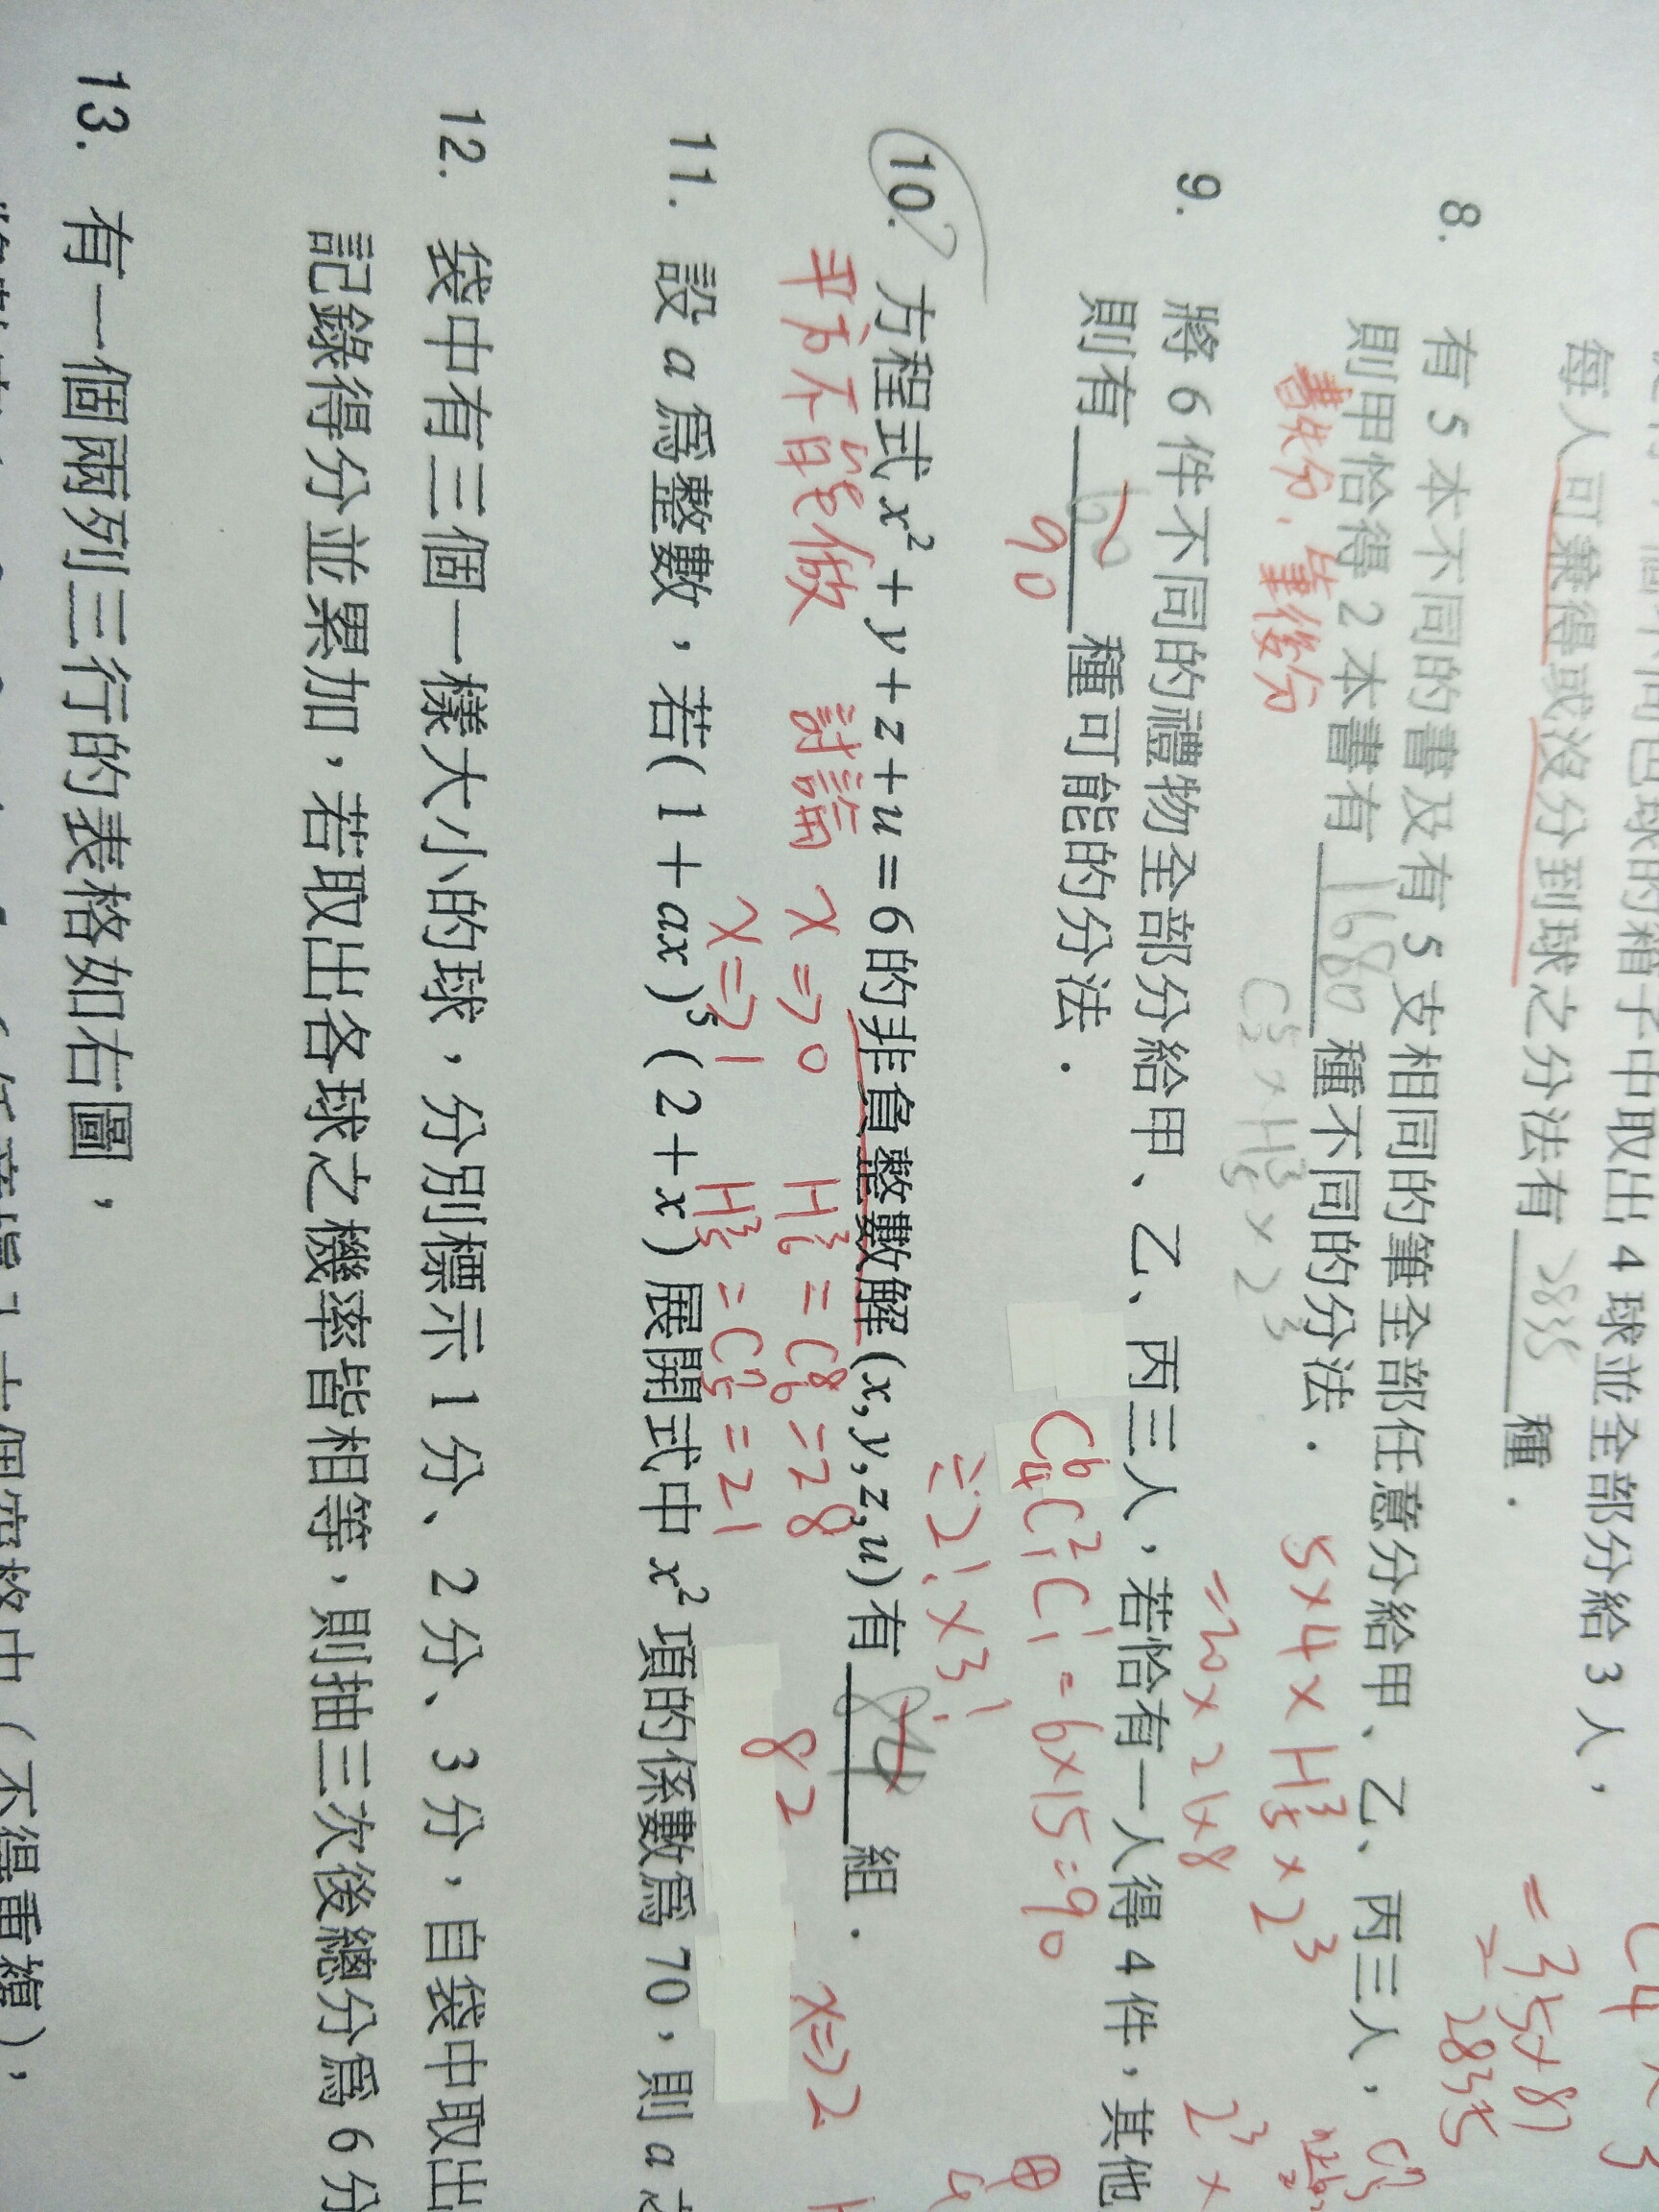 個不同色球的箱子中取出 4 球並全部分給 3 人，
每人可兼得或沒分到球之分法有 2835 種．
= 35×81
= 2835
8. 有 5 本不同的書及有 5 支相同的筆全部任意分給甲、乙、丙三人，
則甲恰得 2 本書有 1680 種不同的分法．
書先分，筆後分
C⁵₂ × H³₅ × 2³
5×4×H³₅×2³
=20×21×8
9. 將 6 件不同的禮物全部分給甲、乙、丙三人，若恰有一人得 4 件，其他
則有 60 種可能的分法．
90
C⁶₄C²₁C¹₁ = 6×15=90
÷2!×3!
10. 方程式 x² + y + z + u = 6 的非負整數解 (x, y, z, u) 有 84 組．
平方不能做 討論 x⇒0 H³₆ = C⁸₆ = 28
x⇒1 H³₅ = C⁷₅ = 21
x⇒2
82
11. 設 a 為整數，若 (1 + ax)⁵ (2 + x) 展開式中 x² 項的係數為 70，則 a
12. 袋中有三個一樣大小的球，分別標示 1 分、2 分、3 分，自袋中取出
記錄得分並累加，若取出各球之機率皆相等，則抽三次後總分為 6 分
13. 有一個兩列三行的表格如右圖，
（不得重複），